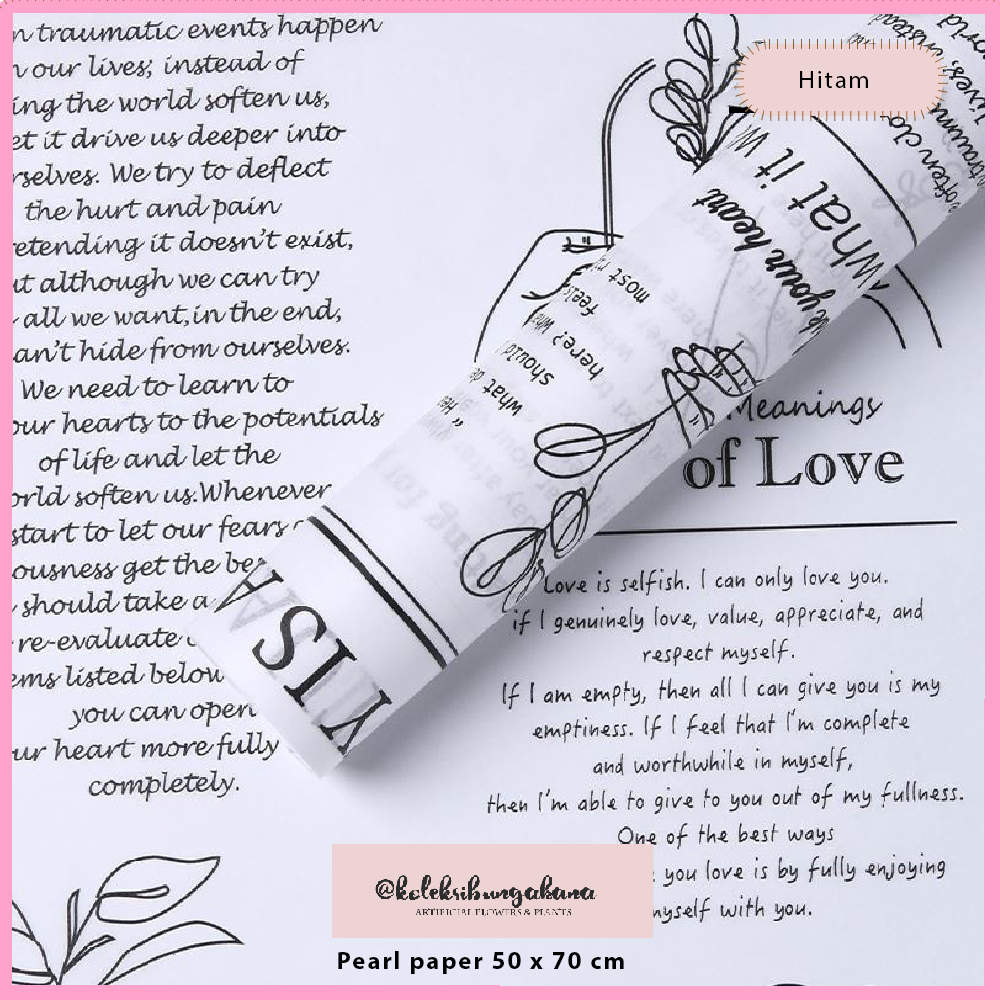 Hitam
n traumatic events happen
n our lives; instead of
ing the world soften us,
et it drive us deeper into
rselves. We try to deflect
the hurt and pain
retending it doesn't exist,
ut although we can try
all we want,in the end,
an't hide from ourselves.
We need to learn to
our hearts to the potentials
of life and let the
orld soften us.Whenever
start to let our fears
ousness get the be
should take a
re-evaluate
ems listed below
you can open
ur heart more fully
completely.
What it w
your heart
most
feel
here? Wha
should
"what de
VISA
Meanings
of Love
Love is selfish. I can only love you.
if I genuinely love, value, appreciate, and
respect myself.
If I am empty, then all I can give you is my
emptiness. If I feel that I'm complete
and worthwhile in myself,
then I'm able to give to you out of my fullness.
One of the best ways
you love is by fully enjoying
myself with you.
@koleksibungakana
ARTIFICIAL FLOWERS & PLANTS
Pearl paper 50 x 70 cm